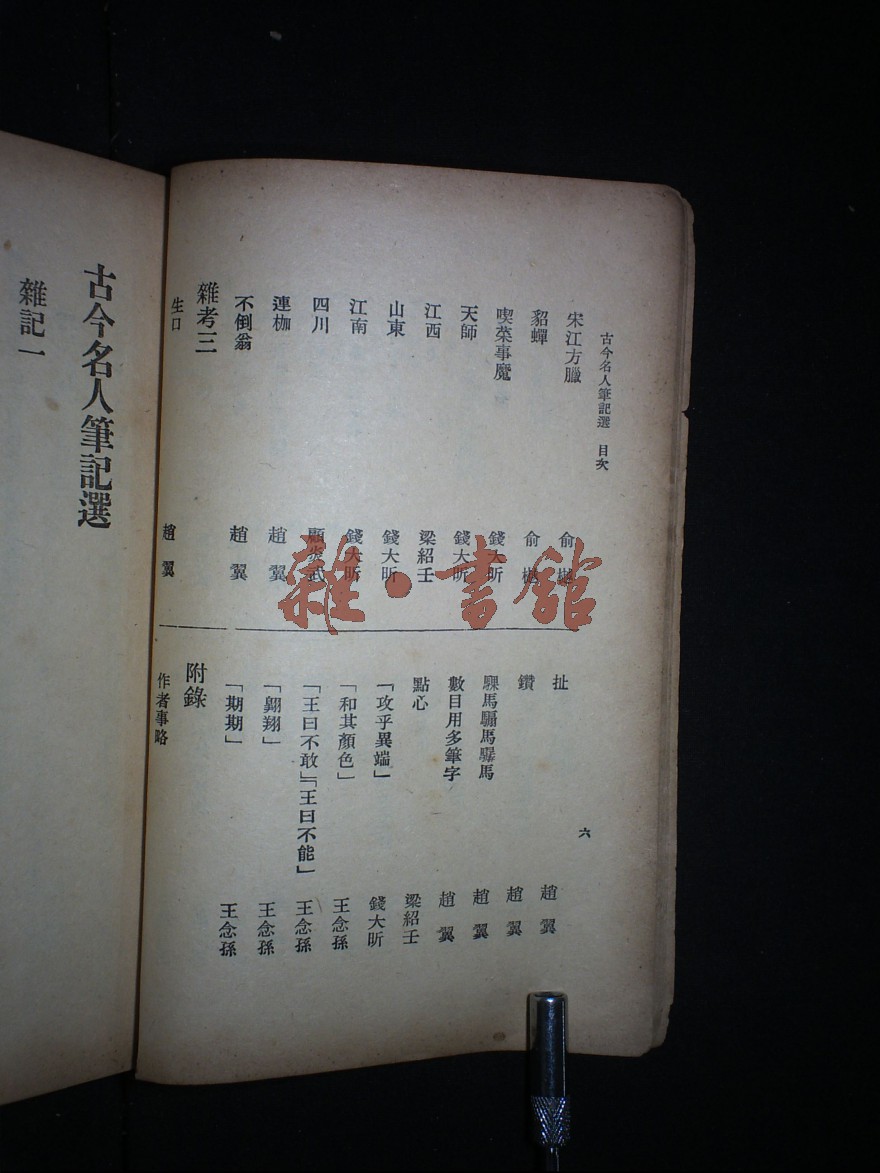 古今名人筆記選　目次
六
宋江方臘　俞樾
貂蟬　俞樾
喫菜事魔　錢大昕
天師　錢大昕
江西　梁紹壬
山東　錢大昕
江南　錢大昕
四川　顧炎武
連枷　趙翼
不倒翁　趙翼
雜考三
生口　趙翼
扯　趙翼
鑽　趙翼
騍馬騸馬驏馬　趙翼
數目用多筆字　趙翼
點心　梁紹壬
「攻乎異端」　錢大昕
「和其顏色」　王念孫
「王曰不敢」「王曰不能」　王念孫
「翺翔」　王念孫
「期期」　王念孫
附錄
作者事略
古今名人筆記選
雜記一
雜·書館